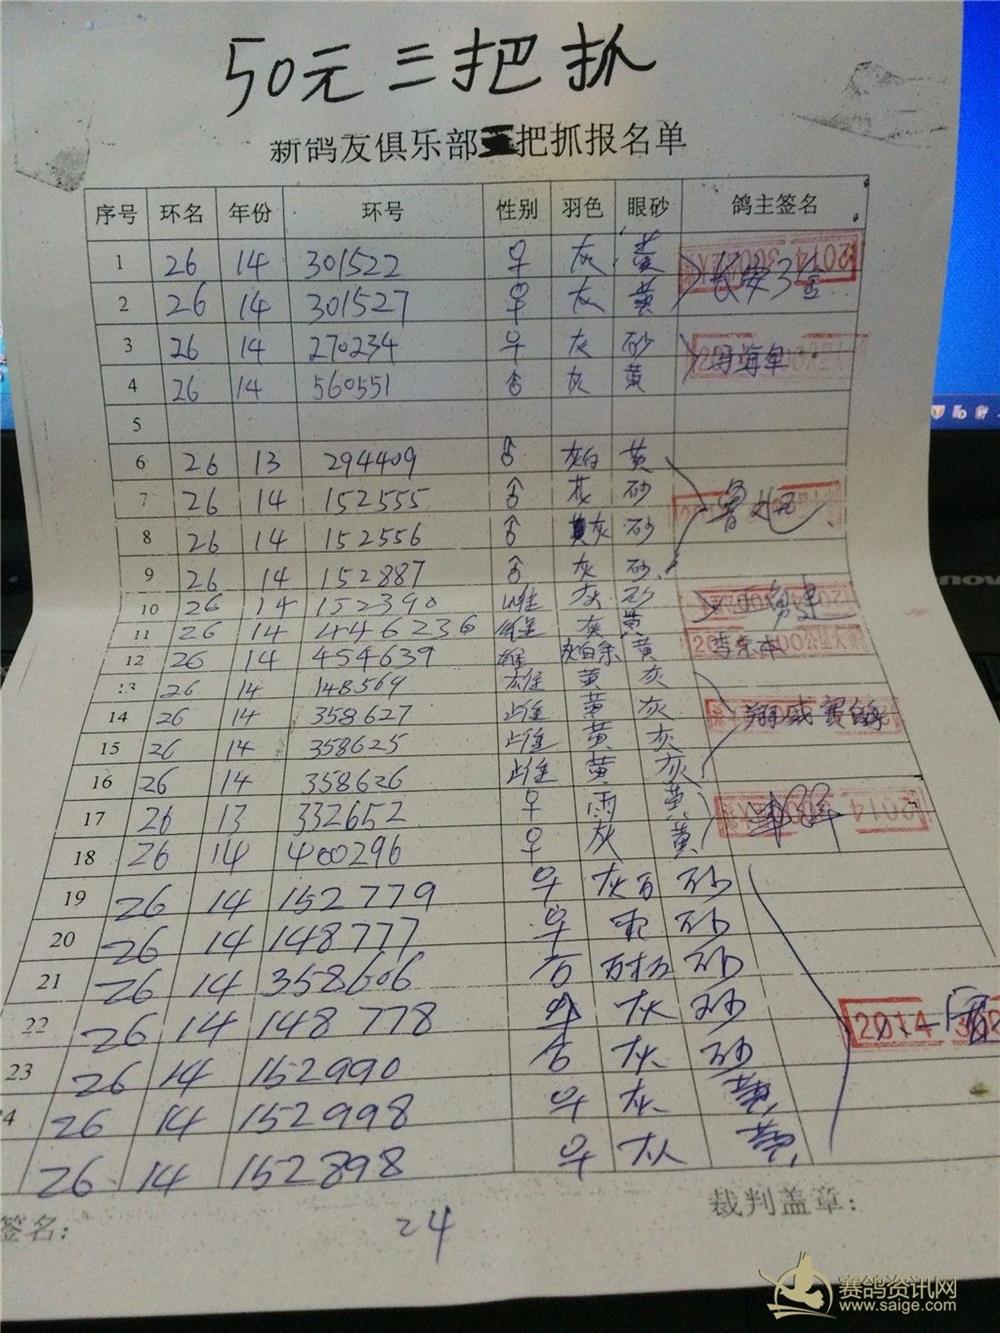 50元三把抓
新鸽友俱乐部 把抓报名单
序号 环名 年份 环号 性别 羽色 眼砂 鸽主签名
1 26 14 301522 ♀ 灰 黄
2 26 14 301527 ♀ 灰 黄
3 26 14 270234 ♀ 灰 砂
4 26 14 560551 ♂ 灰 黄
5
6 26 13 294409 ♂ 灰白 黄
7 26 14 152555 ♂ 花 砂
8 26 14 152556 ♂ 灰 砂
9 26 14 152887 ♂ 灰 砂
10 26 14 152390 雌 灰 砂
11 26 14 446236 灰 黄
12 26 14 454639 黄 李宗本
13 26 14 148569 雄 黄 灰
14 26 14 358627 雌 黄 灰 翔威赛鸽
15 26 14 358625 雌 黄 灰
16 26 14 358626 雌 黄 灰
17 26 13 332652 ♀ 雨 黄
18 26 14 400296 ♀ 灰 黄
19 26 14 152779 ♀ 灰白 砂
20 26 14 148777 ♀ 砂
21 26 14 358606 ♂ 砂
22 26 14 148778 ♀ 灰 砂 2014
23 26 14 152990 ♂ 灰 砂
4 26 14 152998 ♀ 灰 黄
26 14 152898 ♀ 灰 黄
签名: 24 裁判盖章:
赛鸽资讯网
www.saige.com